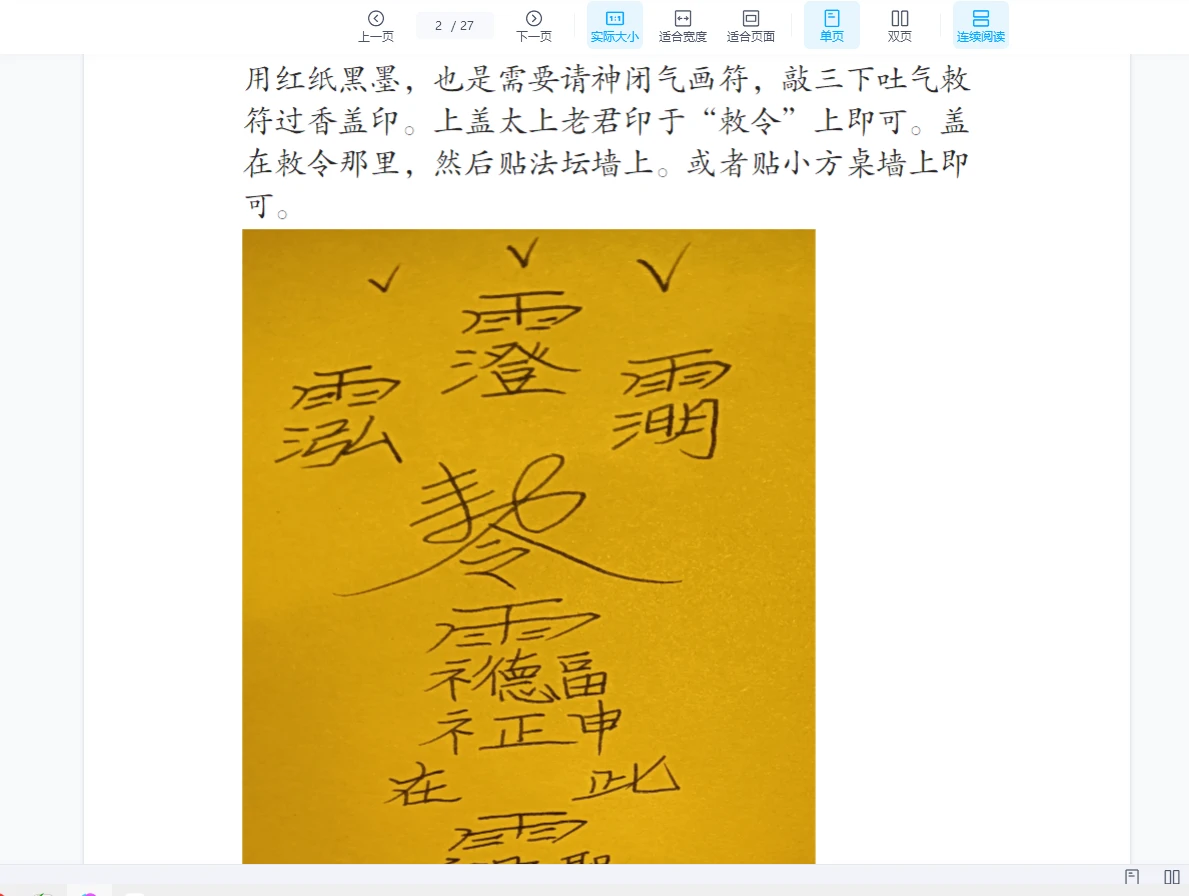 上一页 2 / 27 下一页 1:1 实际大小 适合宽度 适合页面 单页 双页 连续阅读
用红纸黑墨，也是需要请神闭气画符，敲三下吐气敕
符过香盖印。上盖太上老君印于“敕令”上即可。盖
在敕令那里，然后贴法坛墙上。或者贴小方桌墙上即
可。
雨
澄
雨
泓
雨
明
令
雨
礻德畐
礻正申
在 此
雨